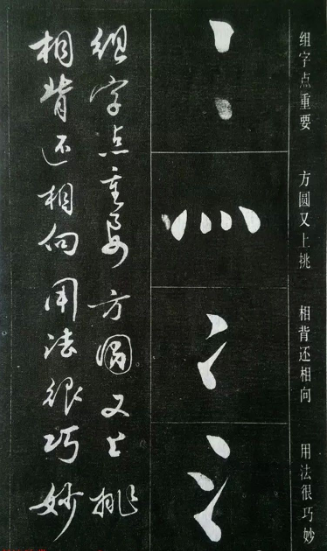 组字点重要 方圆又上挑 相背还相向 用法很巧妙
组字点重要方圆又上挑
相背还相向用法很巧妙